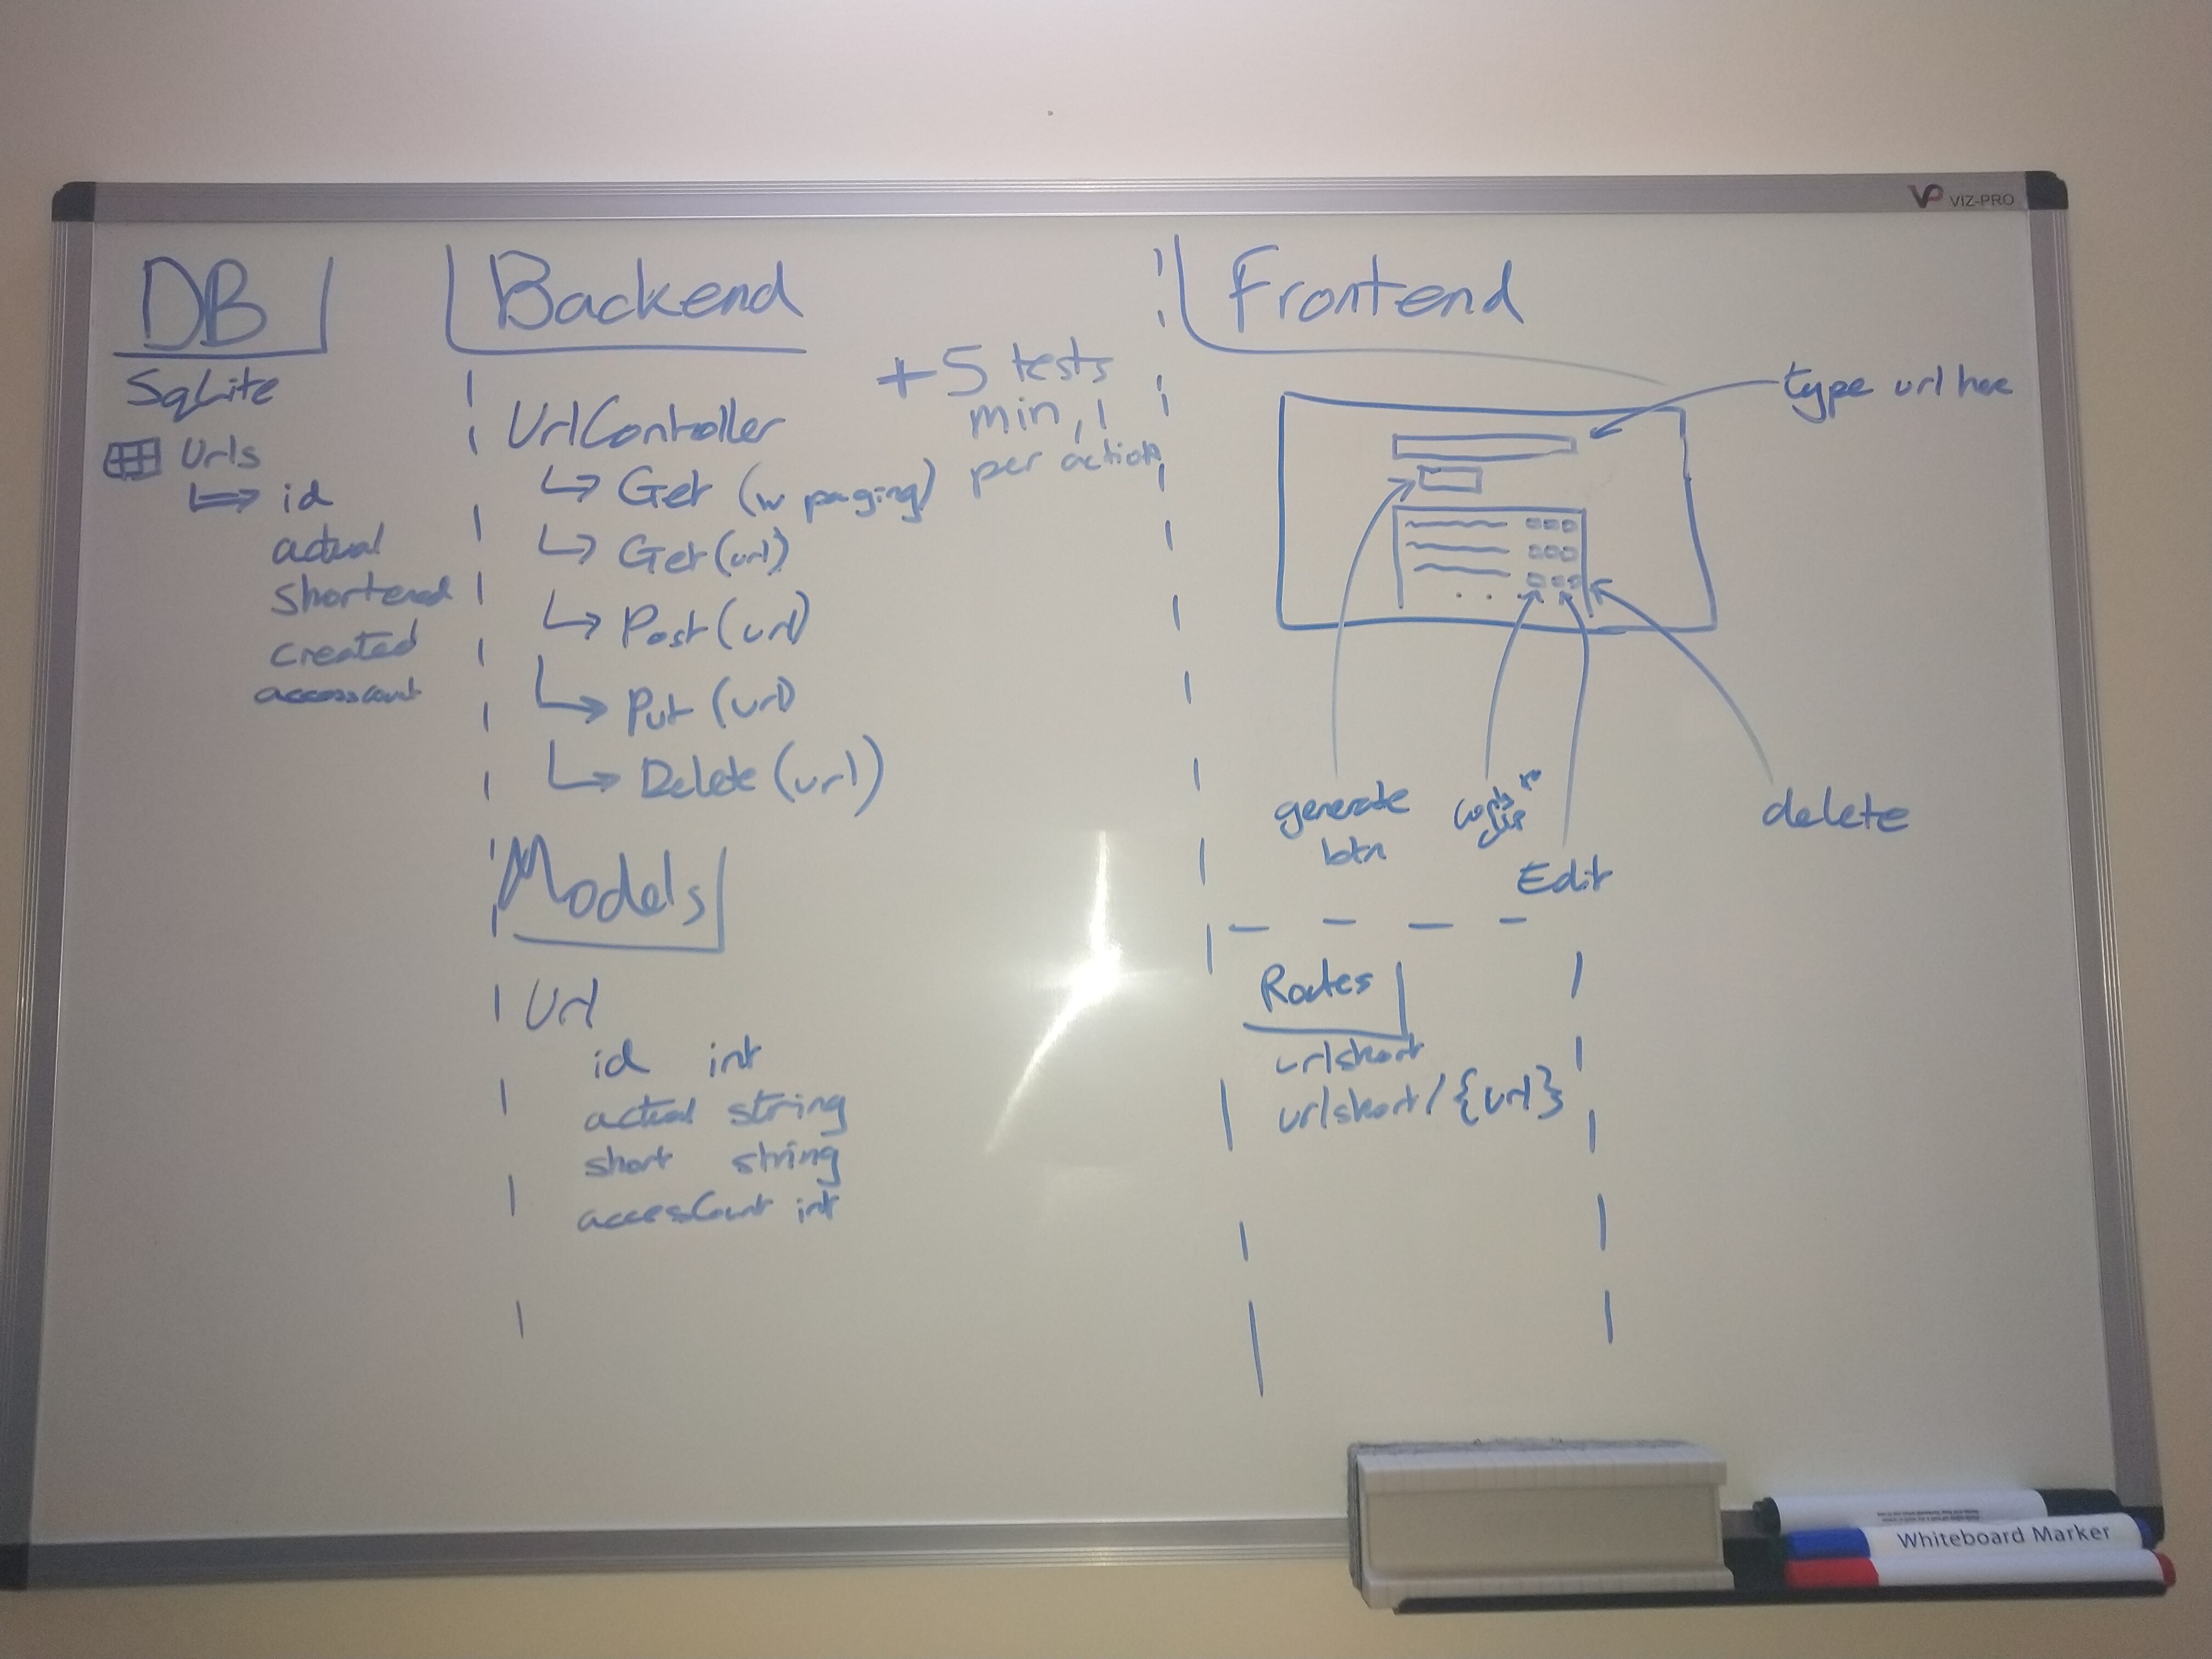 VP VIZ-PRO
DB
SqLite
Urls
id
actual
shortened
created
accesscount
Backend
+5 tests
min, 1
per action
UrlController
Get (w paging)
Get (url)
Post (url)
Put (url)
Delete (url)
Models
Url
id int
actual string
short string
accessCount int
Frontend
type url here
generate
btn
Edit
delete
Routes
urlshort
urlshort/{url}
Whiteboard Marker